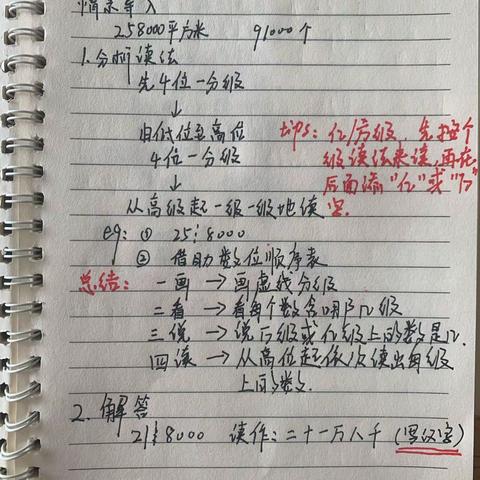 情景导入
258000平方米 91000个
1.分析读法
先4位一分级
↓
由低位至高位
4位一分级
↓
从高级起一级一级地读
tips: 亿/万级,先按个
级读法来读,再在
后面添“亿”或“万”
字.
eg: ① 25¦8000
② 借助数位顺序表
总结: 一画 → 画虚线分级
二看 → 看每个数含哪几级
三说 → 说万级或亿级上的数是几.
四读 → 从高位起依次读出每级
上的数.
2.解答
21¦8000 读作:二十一万八千 (写汉字)